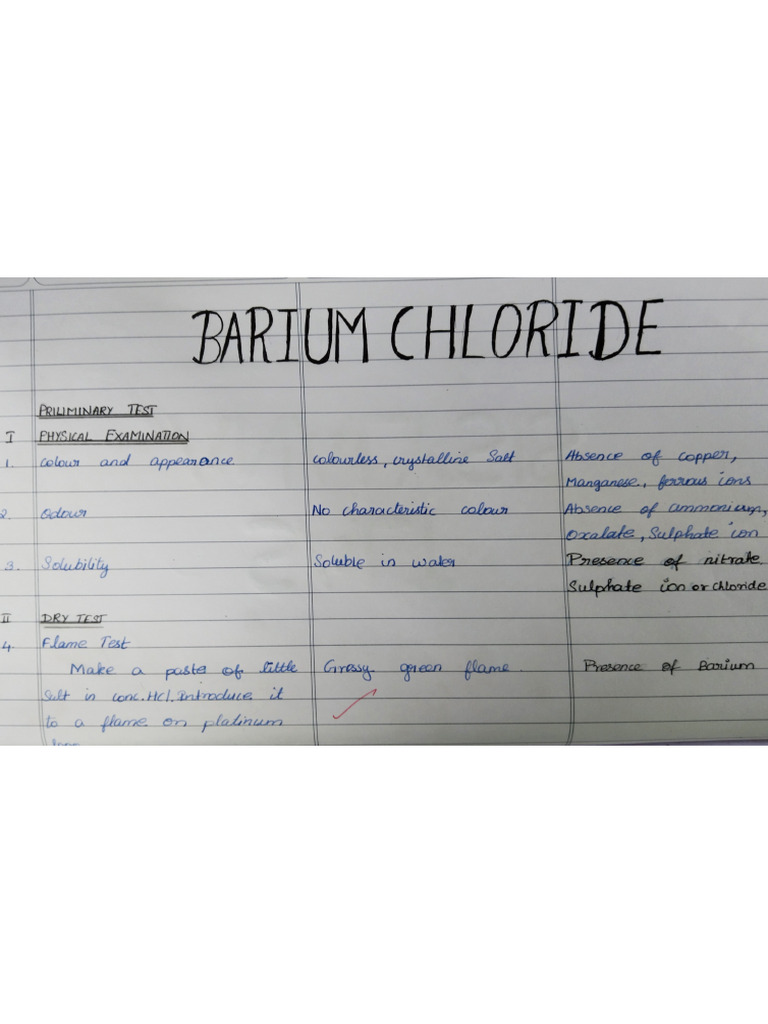 BARIUM CHLORIDE
PRILIMINARY TEST
I PHYSICAL EXAMINATION
1. Colour and appearance colourless, crystalline Salt Absence of copper,
Manganese, ferrous ions
2. Odour No characteristic colour Absence of ammonium,
Oxalate, Sulphate ion
3. Solubility Soluble in water Presence of nitrate
Sulphate ion or chloride
II DRY TEST
4. Flame Test
Make a paste of little Grassy green flame. Presence of Barium
Salt in conc. HCl. Introduce it
to a flame on platinum